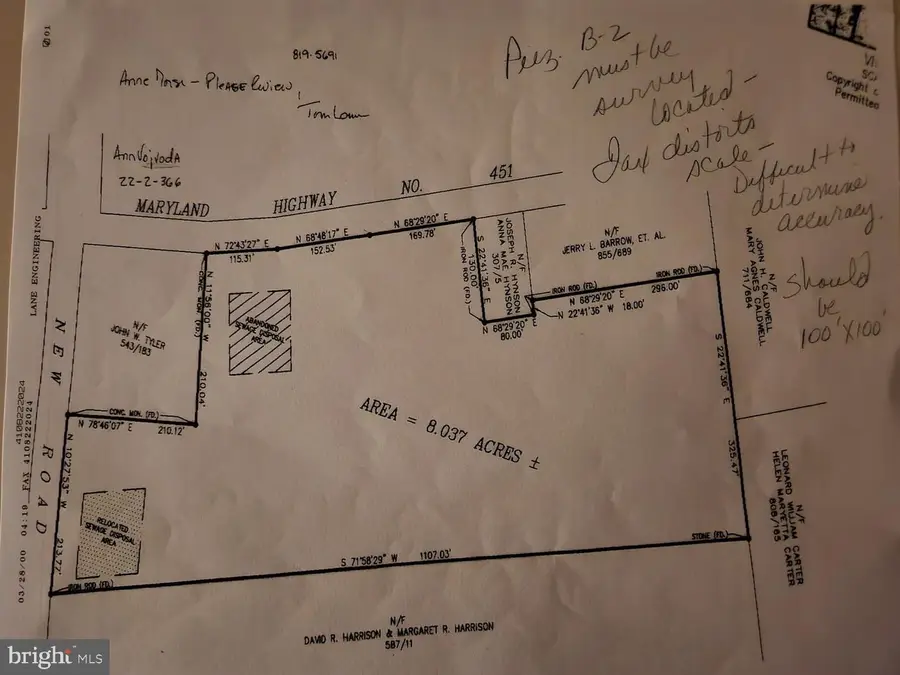 819-5691
Anne Morse - PLEASE Review!
Tom Lane
Ann Vojvoda
22-2-366
Perz. B-2
must be
survey
located -
Fax distorts
scale -
Difficult to
determine
accuracy.
should
be
100' X 100'
Copyright
Permitted
MARYLAND HIGHWAY NO. 451
N 72°43'27" E
115.31'
N 68°48'17" E
152.53'
N 68°29'20" E
169.78'
IRON ROD (FD.)
S 22°41'36" E
130.00'
N/F
JOSEPH R. HYNSON
ANNA MAE HYNSON
307/5
N/F
JERRY L. BARROW, ET. AL.
855/689
N 68°29'20" E
80.00'
N 22°41'36" W 18.00'
IRON ROD (FD.)
IRON ROD (FD.)
N 68°29'20" E 296.00'
N/F
JOHN H. CALDWELL
MARY AGNES CALDWELL
711/684
S 22°41'36" E
325.47'
N/F
LEONARD WILLIAM CARTER
HELEN MARYETTA CARTER
808/165
CONC. MON. (FD.)
N 11°56'00" W
210.04'
ABANDONED
SEWAGE DISPOSAL
AREA
N/F
JOHN W. TYLER
543/183
CONC. MON. (FD.)
N 78°46'07" E 210.12'
N 10°27'53" W
213.77'
RELOCATED
SEWAGE DISPOSAL
AREA
IRON ROD (FD.)
AREA = 8.037 ACRES ±
STONE (FD.)
S 71°58'29" W 1107.03'
N/F
DAVID R. HARRISON & MARGARET R. HARRISON
587/11
NEW ROAD
03/28/00 04:19 FAX 4108222024 LANE ENGINEERING
4108222024
bright MLS